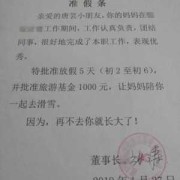 准假条
亲爱的唐艺小朋友,你的妈妈在
工作期间,工作认真负责,团结
同事,很好地完成了本职工作,表现优
秀。
特批准放假5天(初2至初6),
并批准旅游基金1000元,让妈妈陪你
一起去滑雪。
因为,再不去你就长大了!
董事长: